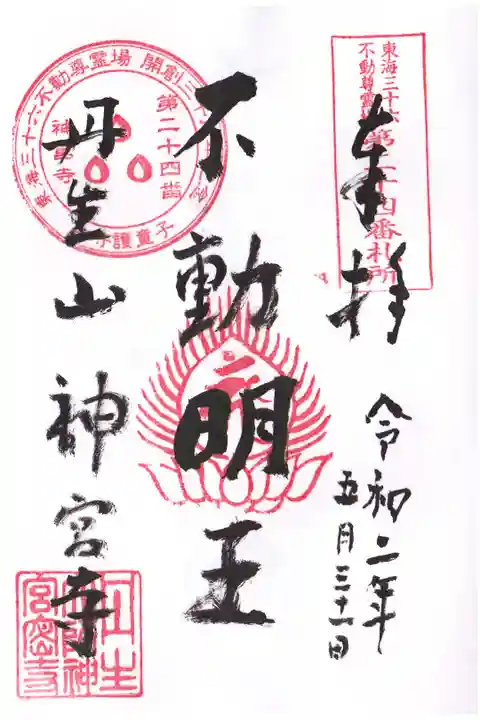 東海三十六
不動尊霊場
第二十四番札所
奉拝
令和二年
五月三十一日
不動明王
丹生山神宮寺
東海三十六不動尊霊場 開創三十
第二十四番
神宮寺
子童護